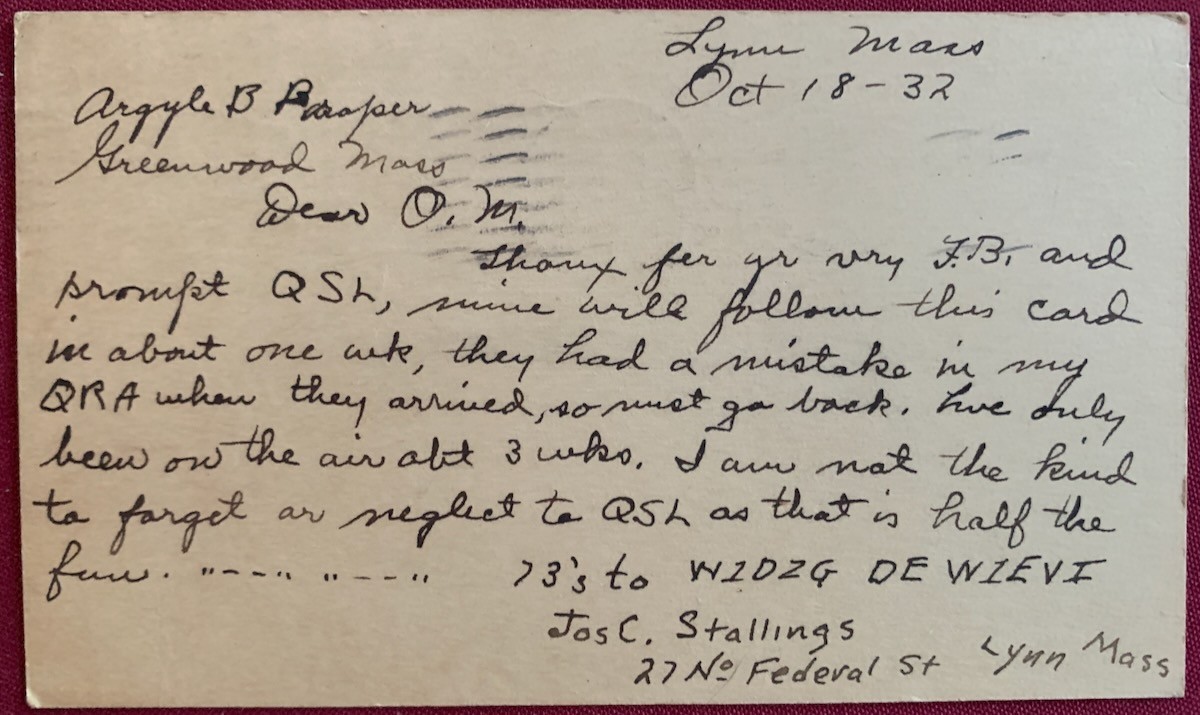 Lynn Mass
Oct 18-32
Argyle B Draper
Greenwood Mass
Dear O.M.
Thanx fer yr vry F.B. and
prompt QSL, mine will follow this card
in about one wk, they had a mistake in my
QRA when they arrived, so must go back. Hve only
been on the air abt 3 wks. I am not the kind
to forget or neglect to QSL as that is half the
fun. ..--.. ..--.. 73's to W1DZG DE W1EVI
Jos C. Stallings
27 No Federal St Lynn Mass